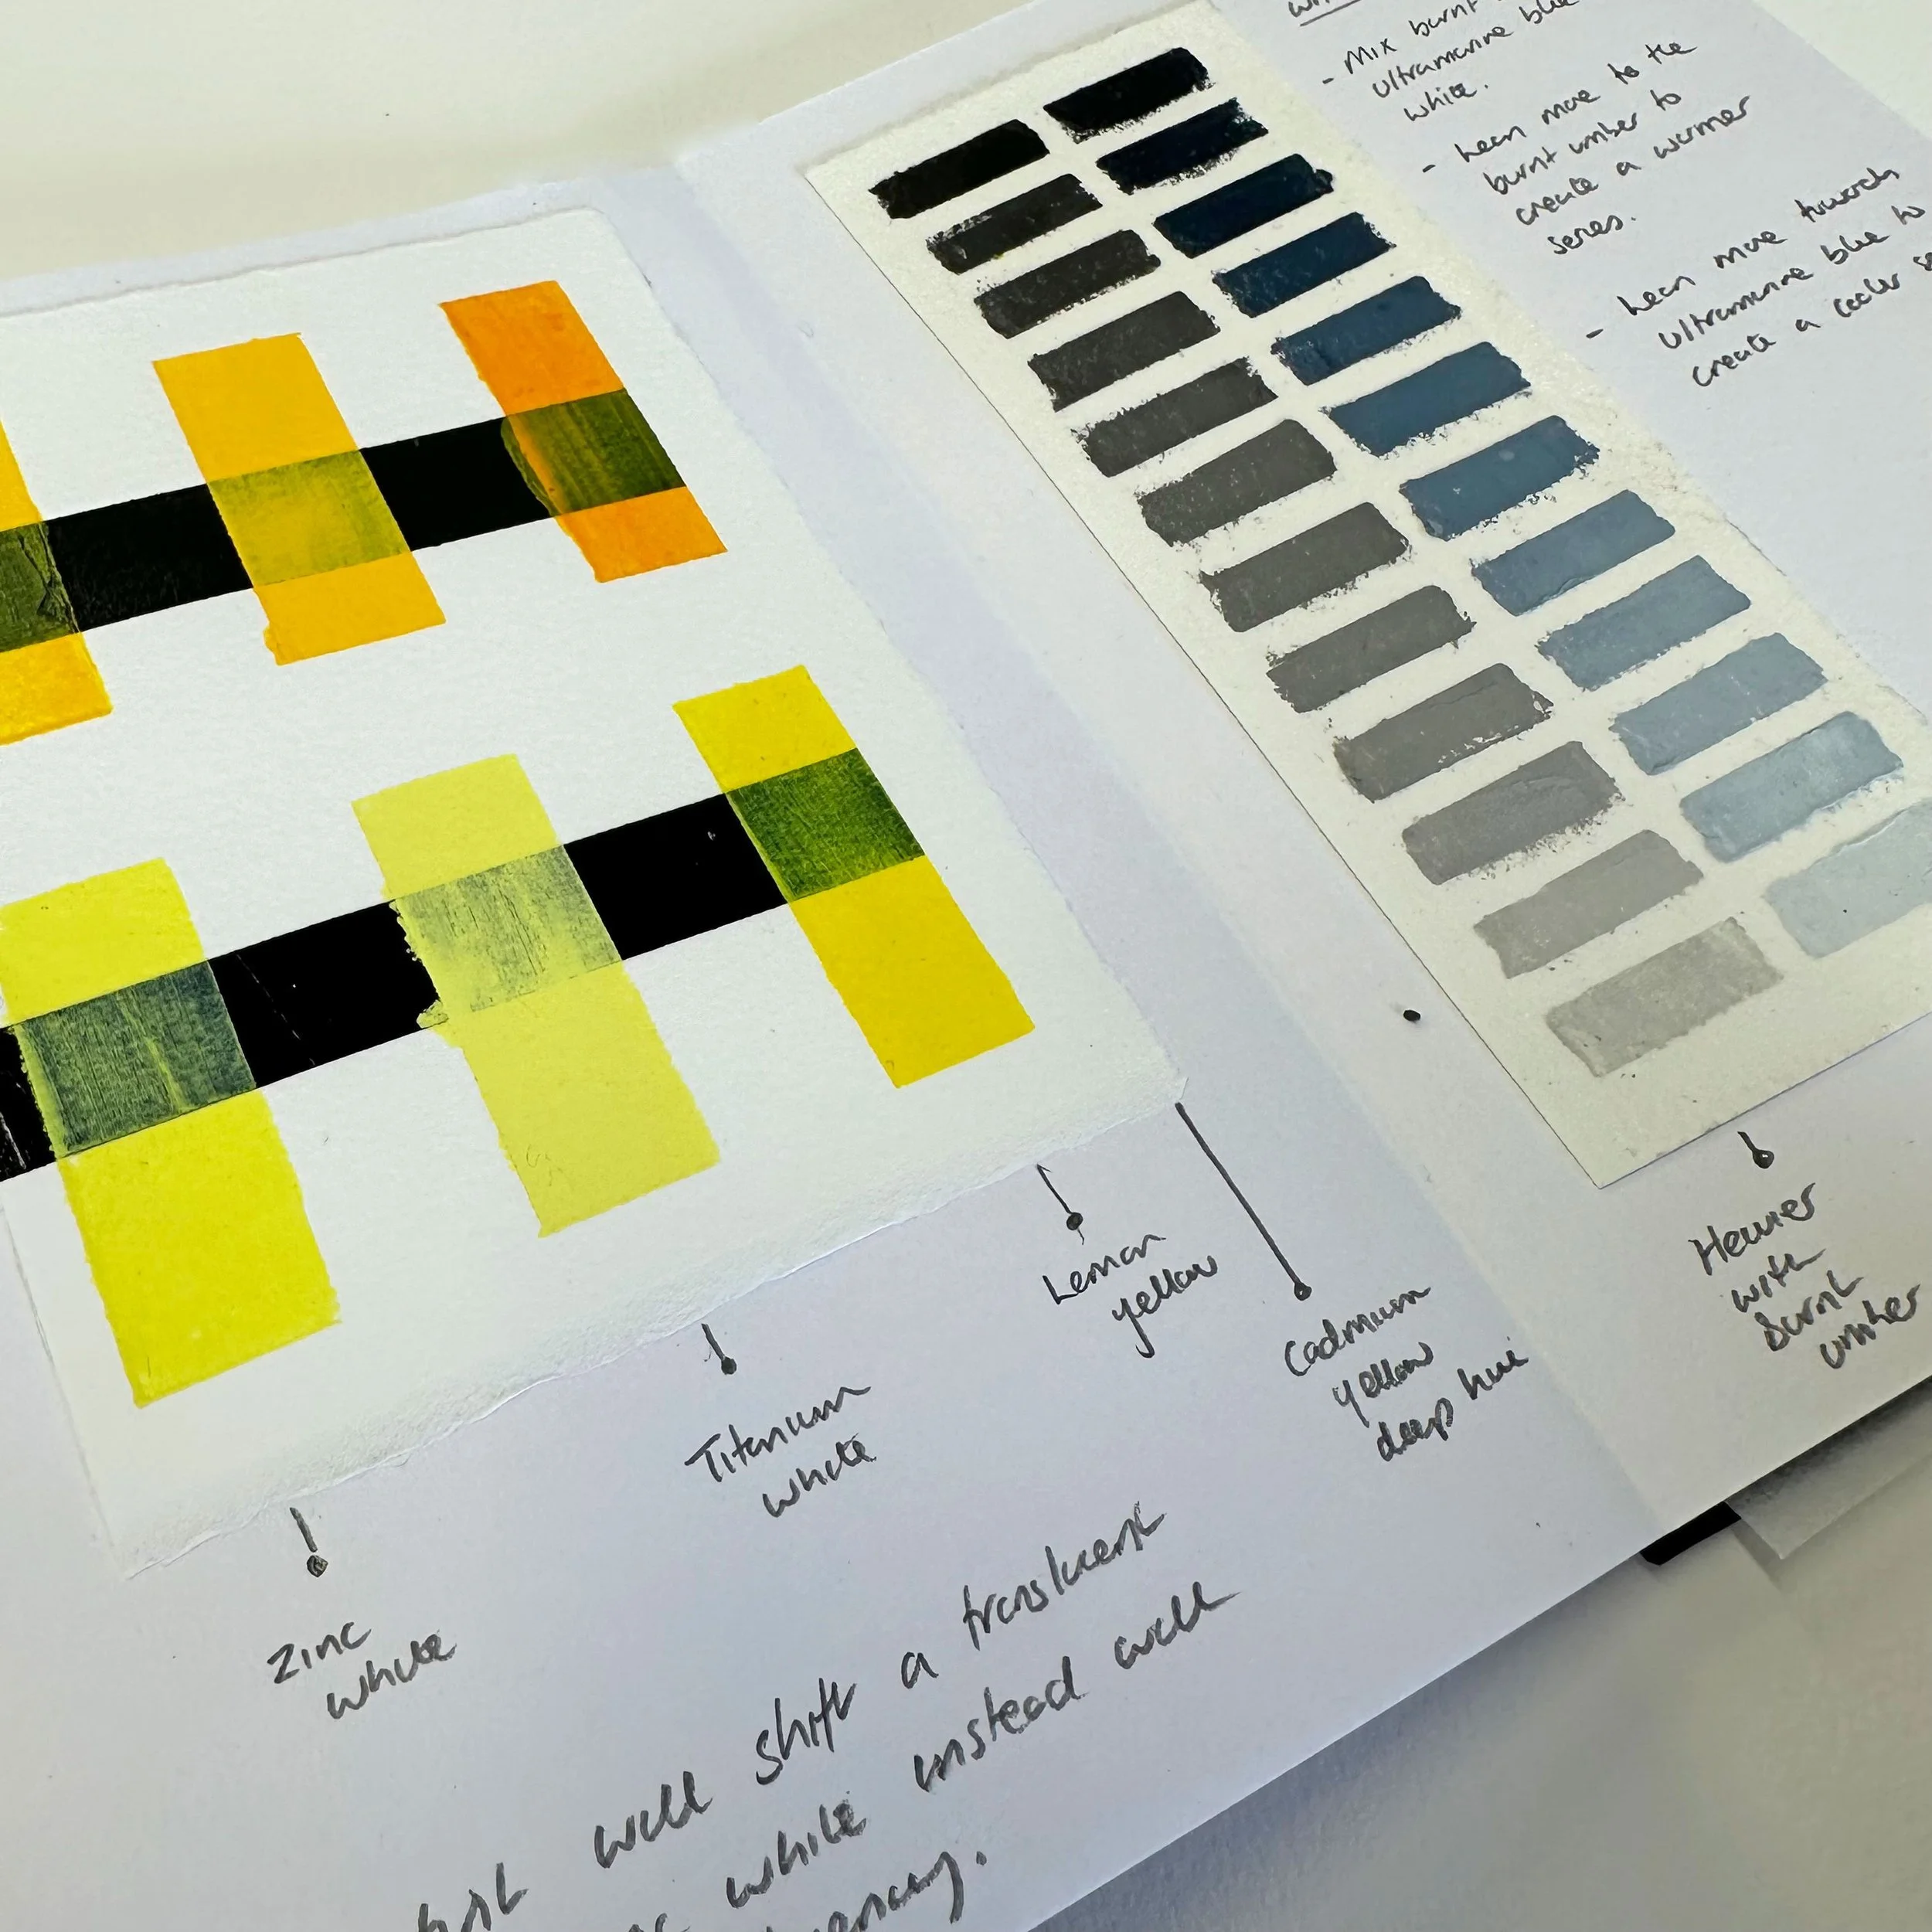 Zinc
white
Titanium
white
Lemon
yellow
Cadmium
yellow
deep hue
will shift a translucent
white instead will
- Mix burnt
ultramarine blue
white.
- Lean more to the
burnt umber to
create a warmer
series.
- Lean more towards
ultramarine blue to
create a cooler
Heavier
with
Burnt
umber